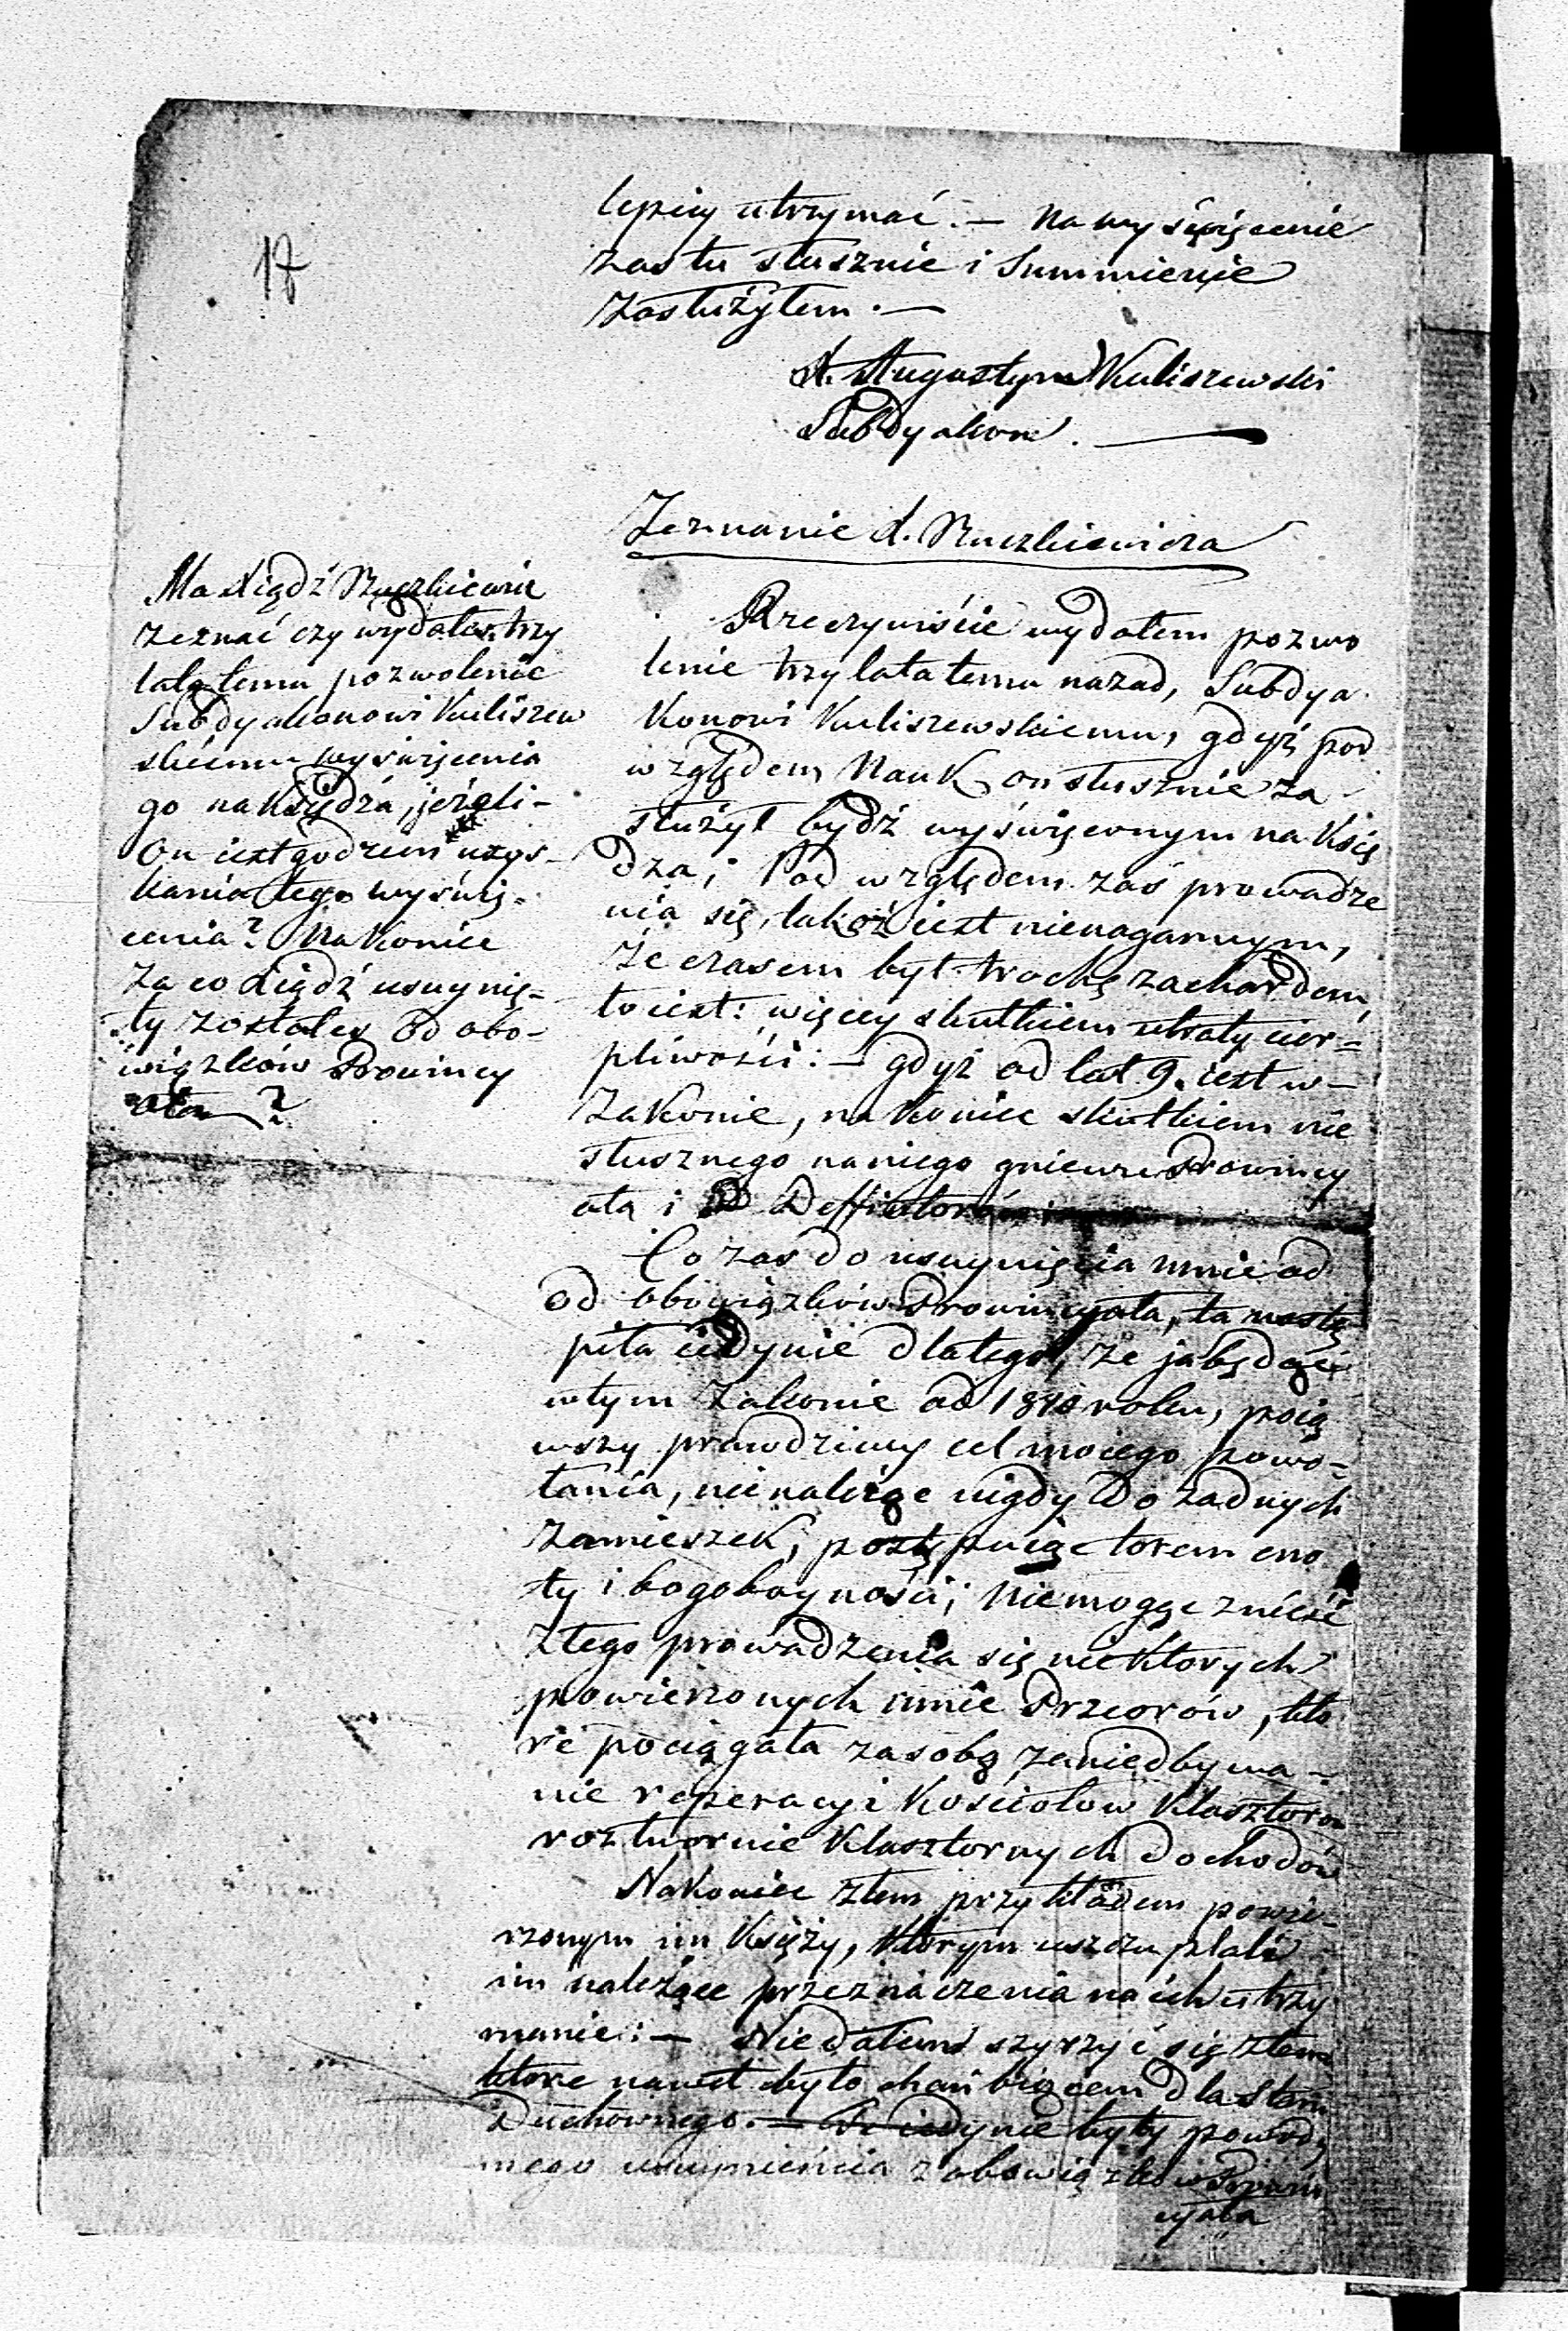 17
lepiey utrzymać. — Na wyświęcenie
zas tu słusznie i Summienie
zasłużyłem. —
X. Augustyn Kuliszewski
Subdyakon. —
Zeznanie X. Ruczkiewicza
Ma Xiądź Ruczkiewicz
zeznać czy wydałes trzy
lata temu pozwolenie
Subdyakonowi Kuliszew
skiemu wyswięcenia
go na Księdza, jeżeli-
On iest godzien uzys-
kania tego wyświę-
cenia? Na Koniec
za co Xiądź usunię-
ty zostałes od obo-
wiązków Prowincy
ała?
Rzeczywiście wydałem pozwo
lenie trzy lata temu nazad, Subdya
Konowi Kuliszewskiemu, gdyż pod
względem Nauk on słusznie za-
służył bydź wyświęconym naКсię
dza; Pod względem zaś prowadze
nia się, takoż iest nienagannym,
że czasem był trochę zachardem,
to iest: więcey skutkiem utraty cier=
pliwości: — gdyż od lat 9. iest w-
Zakonie, na Koniec skutkiem nie
słusznego na niego gniewu Prowincy
ała i Deffinitorów
Co zas do usunięcia mnie od
od obowiązków Prowincyała, ta nastę
piła iedynie dlatego, że ja będąc
w tym Zakonie od 1810 roku, poią
wszy prawdziwy cel moiego powo=
łania, nie należąc nigdy do żadnych
Zamieszek, postępuiąc torem cno
ty i bogoboyności; nie mogąc znieść
złego prowadzenia się niektorych
powierzonych mnie Przeorów, kto
re pociągała za sobą zaniedbywa-
nie reperacyi Kościołow Klasztorow
roztwornie Klasztornych dochodów
Nakoniec złem przykładem powie-
rzonym im Księży, Którym uszczuplali
im należące przeznaczenia na ich utrzy
manie: — Nie dałem szyrzyć się złemu
ktore nawet było chańbiącem dla Stanu
Duchownego. — Te iedynie były powody
mego usunięncia z obowiązków Prowin
cyała